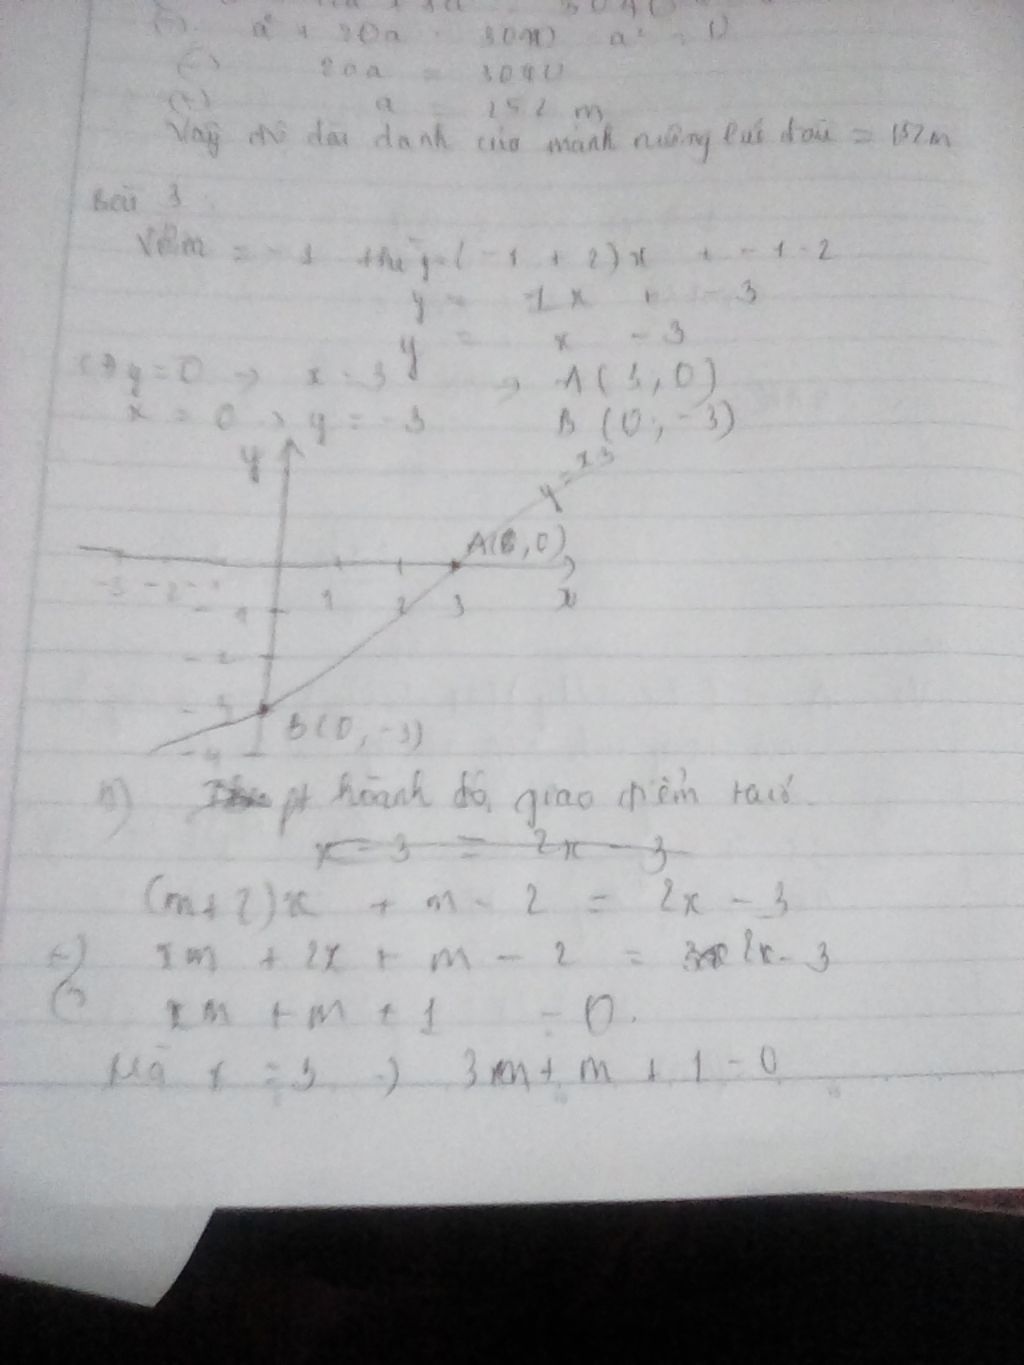 a² + 20a - 3040 a² = 0
(=) 20a = 3040
(=) a = 152 m
Vậy độ dài cạnh của mảnh ruộng lúc đầu = 152m
Bài 3
Với m = -1 thì y = (-1 + 2)x + -1-2
y = 1x + -3
y = x - 3
y = 0 → x = 3 → A(3,0)
x = 0 → y = -3 B (0;-3)
y
y = x-3
A(3,0)
-3 -2 1 2 3 x
-1
-2
-3
B(0,-3)
-4
pt hoành độ giao điểm ta có
x - 3 = 2x - 3
(m+2)x + m - 2 = 2x - 3
(=) xm + 2x + m - 2 = 2x - 3
(=) xm + m + 1 = 0.
Mà x = 3 → 3m + m + 1 = 0